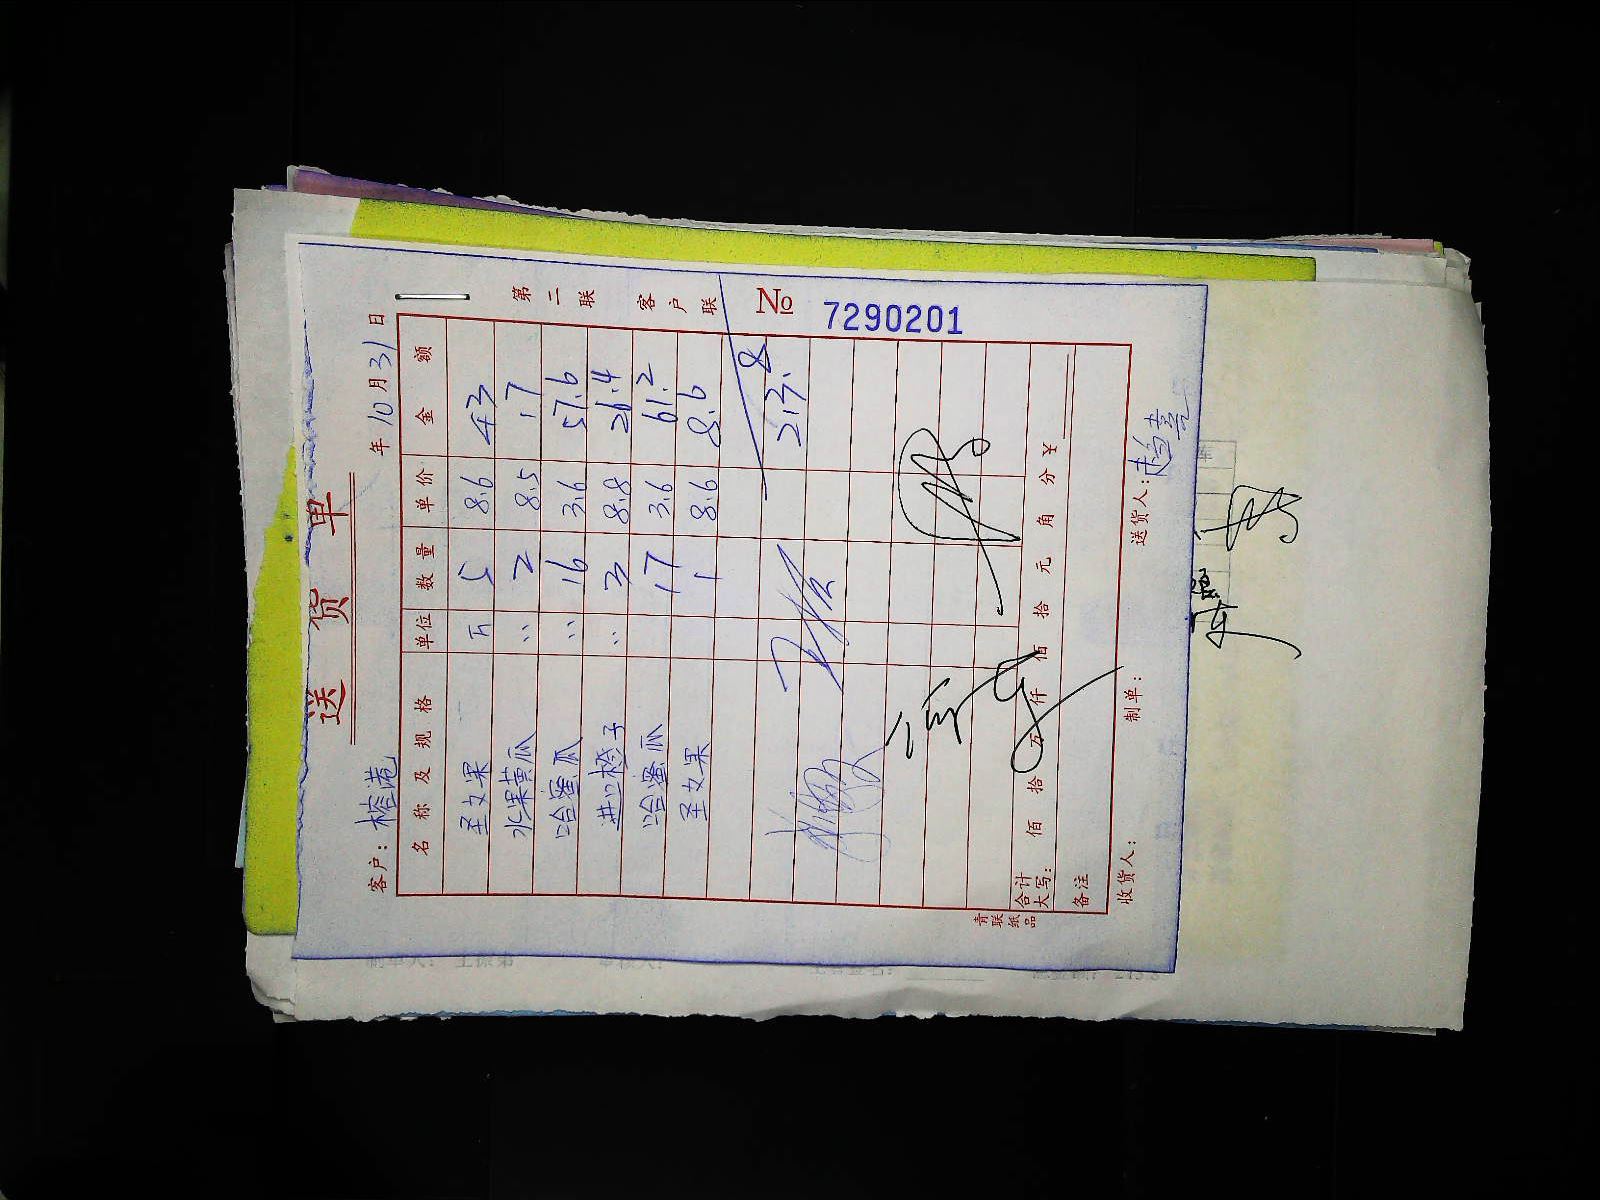 送货单
第二联 客户联
№ 7290201
客户：榕港 年10月31日
名称及规格 单位 数量 单价 金额
圣女果 斤 5 8.6 43
水果黄瓜 〃 2 8.5 17
哈蜜瓜 〃 16 3.6 57.6
进口橙子 〃 3 8.8 26.4
哈蜜瓜 17 3.6 61.2
圣女果 1 8.6 8.6
213.8
合计大写： 佰 拾 万 仟 佰 拾 元 角 分 ¥
备注
收货人： 制单： 送货人：
青联纸品